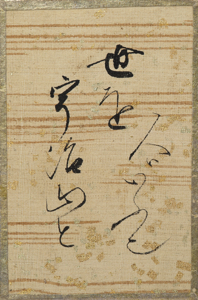 世を
宇治山と
人はいふなり